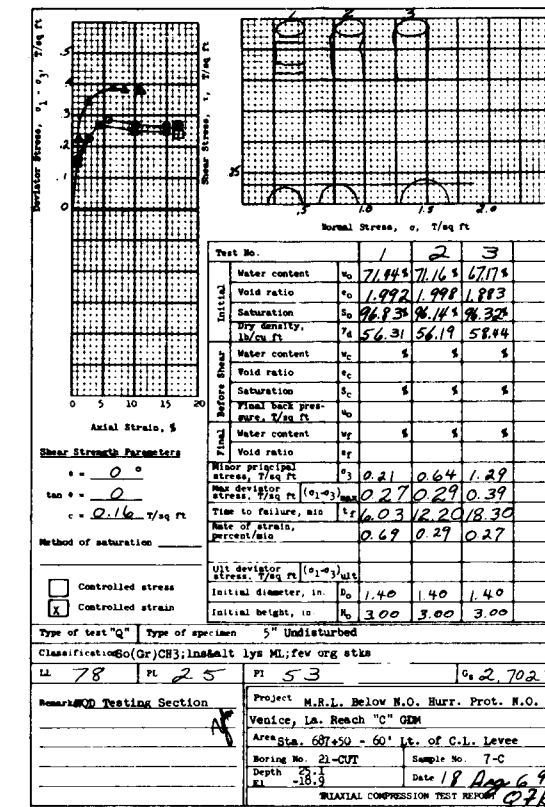 1 2 3
Deviator Stress, σ1 - σ3, T/sq ft
Shear Stress, τ, T/sq ft
.5
.3
.2
.1
0
0 5 10 15 20
Axial Strain, %
.25
.5 1.0 1.5 2.0
Normal Stress, σ, T/sq ft
Shear Strength Parameters
φ = 0 °
tan φ = 0
c = 0.16 T/sq ft
Method of saturation
Controlled stress
X Controlled strain
Test No. 1 2 3
Initial
Water content wo 71.94% 71.16% 67.17%
Void ratio eo 1.992 1.998 1.883
Saturation So 96.83% 96.14% 96.32%
Dry density, lb/cu ft γd 56.31 56.19 58.44
Before Shear
Water content wc % % %
Void ratio ec
Saturation Sc % % %
Final back pressure, T/sq ft uo
Final
Water content wf % % %
Void ratio ef
Minor principal stress, T/sq ft σ3 0.21 0.64 1.29
Max deviator stress, T/sq ft (σ1-σ3)max 0.27 0.29 0.39
Time to failure, min tf 6.03 12.20 18.30
Rate of strain, percent/min 0.69 0.29 0.27
Ult deviator stress, T/sq ft (σ1-σ3)ult
Initial diameter, in. Do 1.40 1.40 1.40
Initial height, in. Ho 3.00 3.00 3.00
Type of test "Q" Type of specimen 5" Undisturbed
Classification So(Gr)CH3;lns&alt lys ML;few org stks
LL 78 PL 25 PI 53 Gs 2.702
Remarks WOD Testing Section
Project M.R.L. Below N.O. Hurr. Prot. N.O.
Venice, La. Reach "C" GDM
Area Sta. 687+50 - 60' Lt. of C.L. Levee
Boring No. 21-CUT Sample No. 7-C
Depth El -18.9 Date 18 Aug 69
TRIAXIAL COMPRESSION TEST REPORT